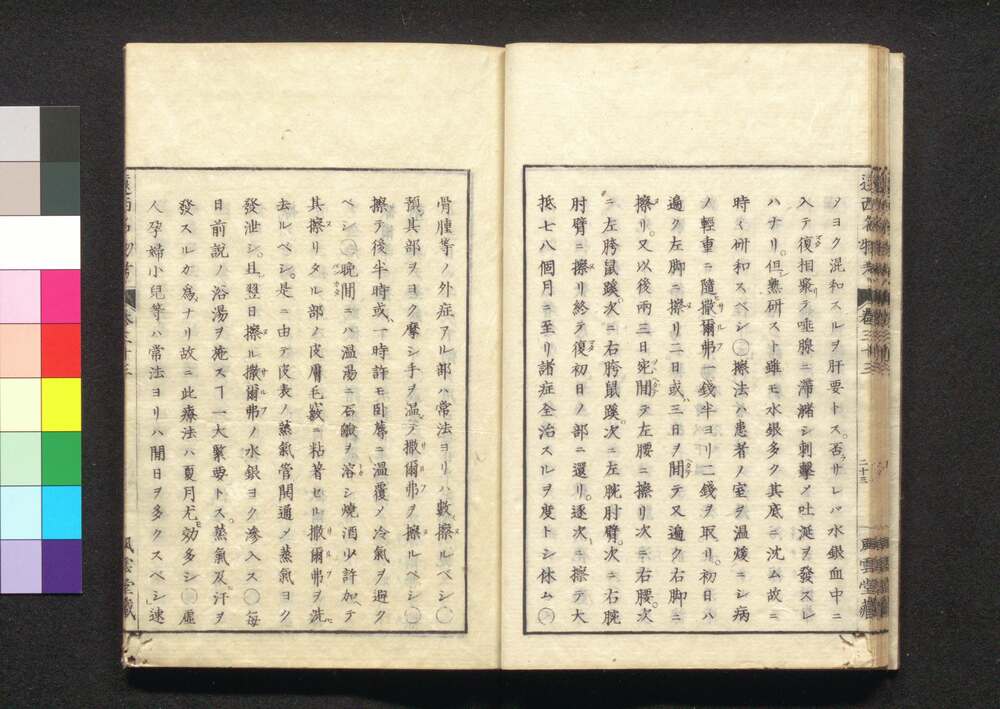 ノヨク混和スルヲ肝要トス。否サレバ水銀血中ニ
入テ復相聚テ唾腺ニ滞瀦シ刺撃メ吐涎ヲ發スレ
ハナリ。但シ熟研スト雖モ水銀多ク其底ニ沈ム故ニ
時々研和スベシ○擦法ハ患者ノ室ヲ温煖ニシ病
ノ輕重ニ隨テ撒爾弗一錢半ヨリ二錢ヲ取リ。初日ハ
遍ク左脚ニ擦リ二日或ハ三日ヲ間テ又遍ク右脚ニ
擦リ。又以後兩三日宛間テ左腰ニ擦リ次ニ右腰。次
ニ左胯鼠蹊。次ニ右胯鼠蹊。次ニ左腕肘臂。次ニ右腕
肘臂ニ擦リ終テ復初日ノ部ニ還リ。逐次ニ擦テ大
抵七八個月ニ至リ諸症全治スルヲ度トシ休ム○
骨腫等ノ外症アル部ハ常法ヨリハ數擦ルベシ○
預其部ヲヨク摩シ手ヲ温テ撒爾弗ヲ擦ルベシ○
擦テ後半時或ハ一時許モ臥蓐ニ温覆メ冷氣ヲ避ク
ベシ○晩間ニハ温湯ニ石鹸ヲ溶シ燒酒少許加ヘテ
其擦リタル部ノ皮膚毛竅ニ粘著セル撒爾弗ヲ洗
去ルベシ。是ニ由テ皮表ノ蒸氣管開通メ蒸氣ヨク
發泄シ。且翌日擦ル撒爾弗ノ水銀ヨク滲入ス○毎
日前説ノ浴湯ヲ施スヿ一大緊要トス。蒸氣及汗ヲ
發スルガ為ナリ故ニ此療法ハ夏月尤モ効多シ○虚
人孕婦小兒等ハ常法ヨリハ間日ヲ多クスベシ」速
遠西名物考 卷三十三 二十三 風雲堂藏